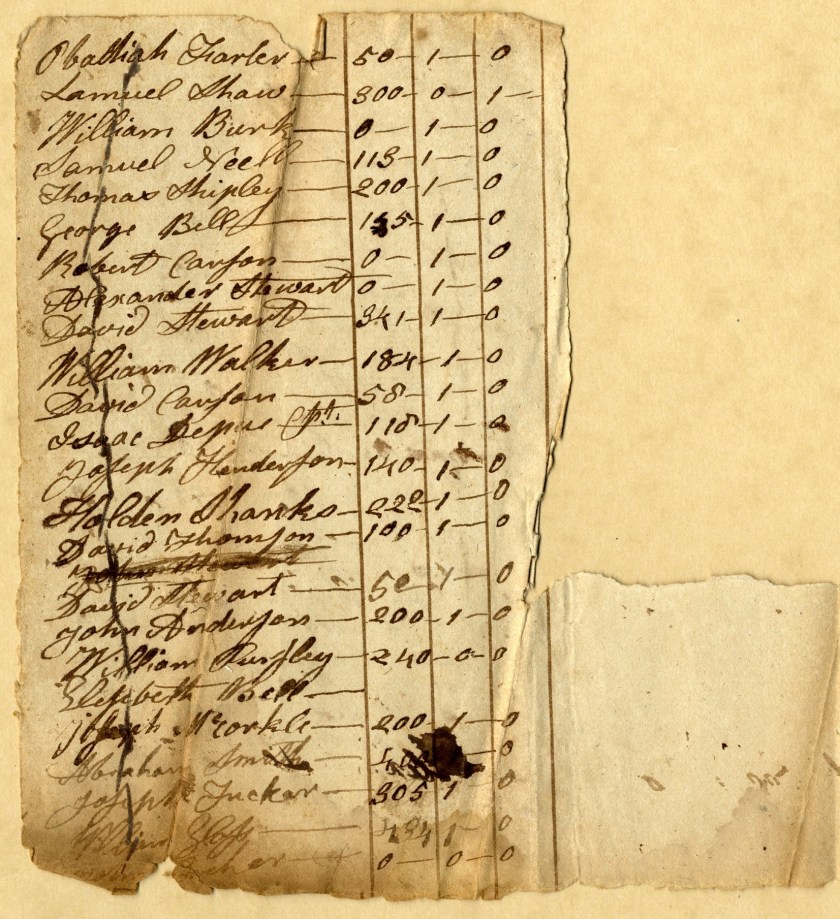 Obadiah Farler — 50 — 1 — 0
Samuel Shaw — 300 — 0 — 1 —
William Burk — 0 — 1 — 0
Samuel Neell — 113 — 1 — 0
Thomas Shipley — 200 — 1 — 0
George Bell — 1 5 — 1 — 0
Robert Carson — 0 — 1 — 0
Alexander Stewart 0 — 1 — 0
David Stewart — 341 — 1 — 0
William Walker — 184 — 1 — 0
David Carson — 58 — 1 — 0
Isaac Depue Cpt. — 118 — 1 — 0
Joseph Henderson — 140 — 1 — 0
Holden Shanks — 222 — 1 — 0
David Thomson — 100 — 1 — 0
Stewart
David Stewart — 50 — 1 — 0
John Anderson — 200 — 1 — 0
William Pursley — 240 — 0 — 0
Elesebeth Bell —
Joseph McCorkle — 200 — 1 — 0
Abraham Smith — 0
Joseph Tucker — 305 1 0
434 1 — 0
0 — 0 — 0